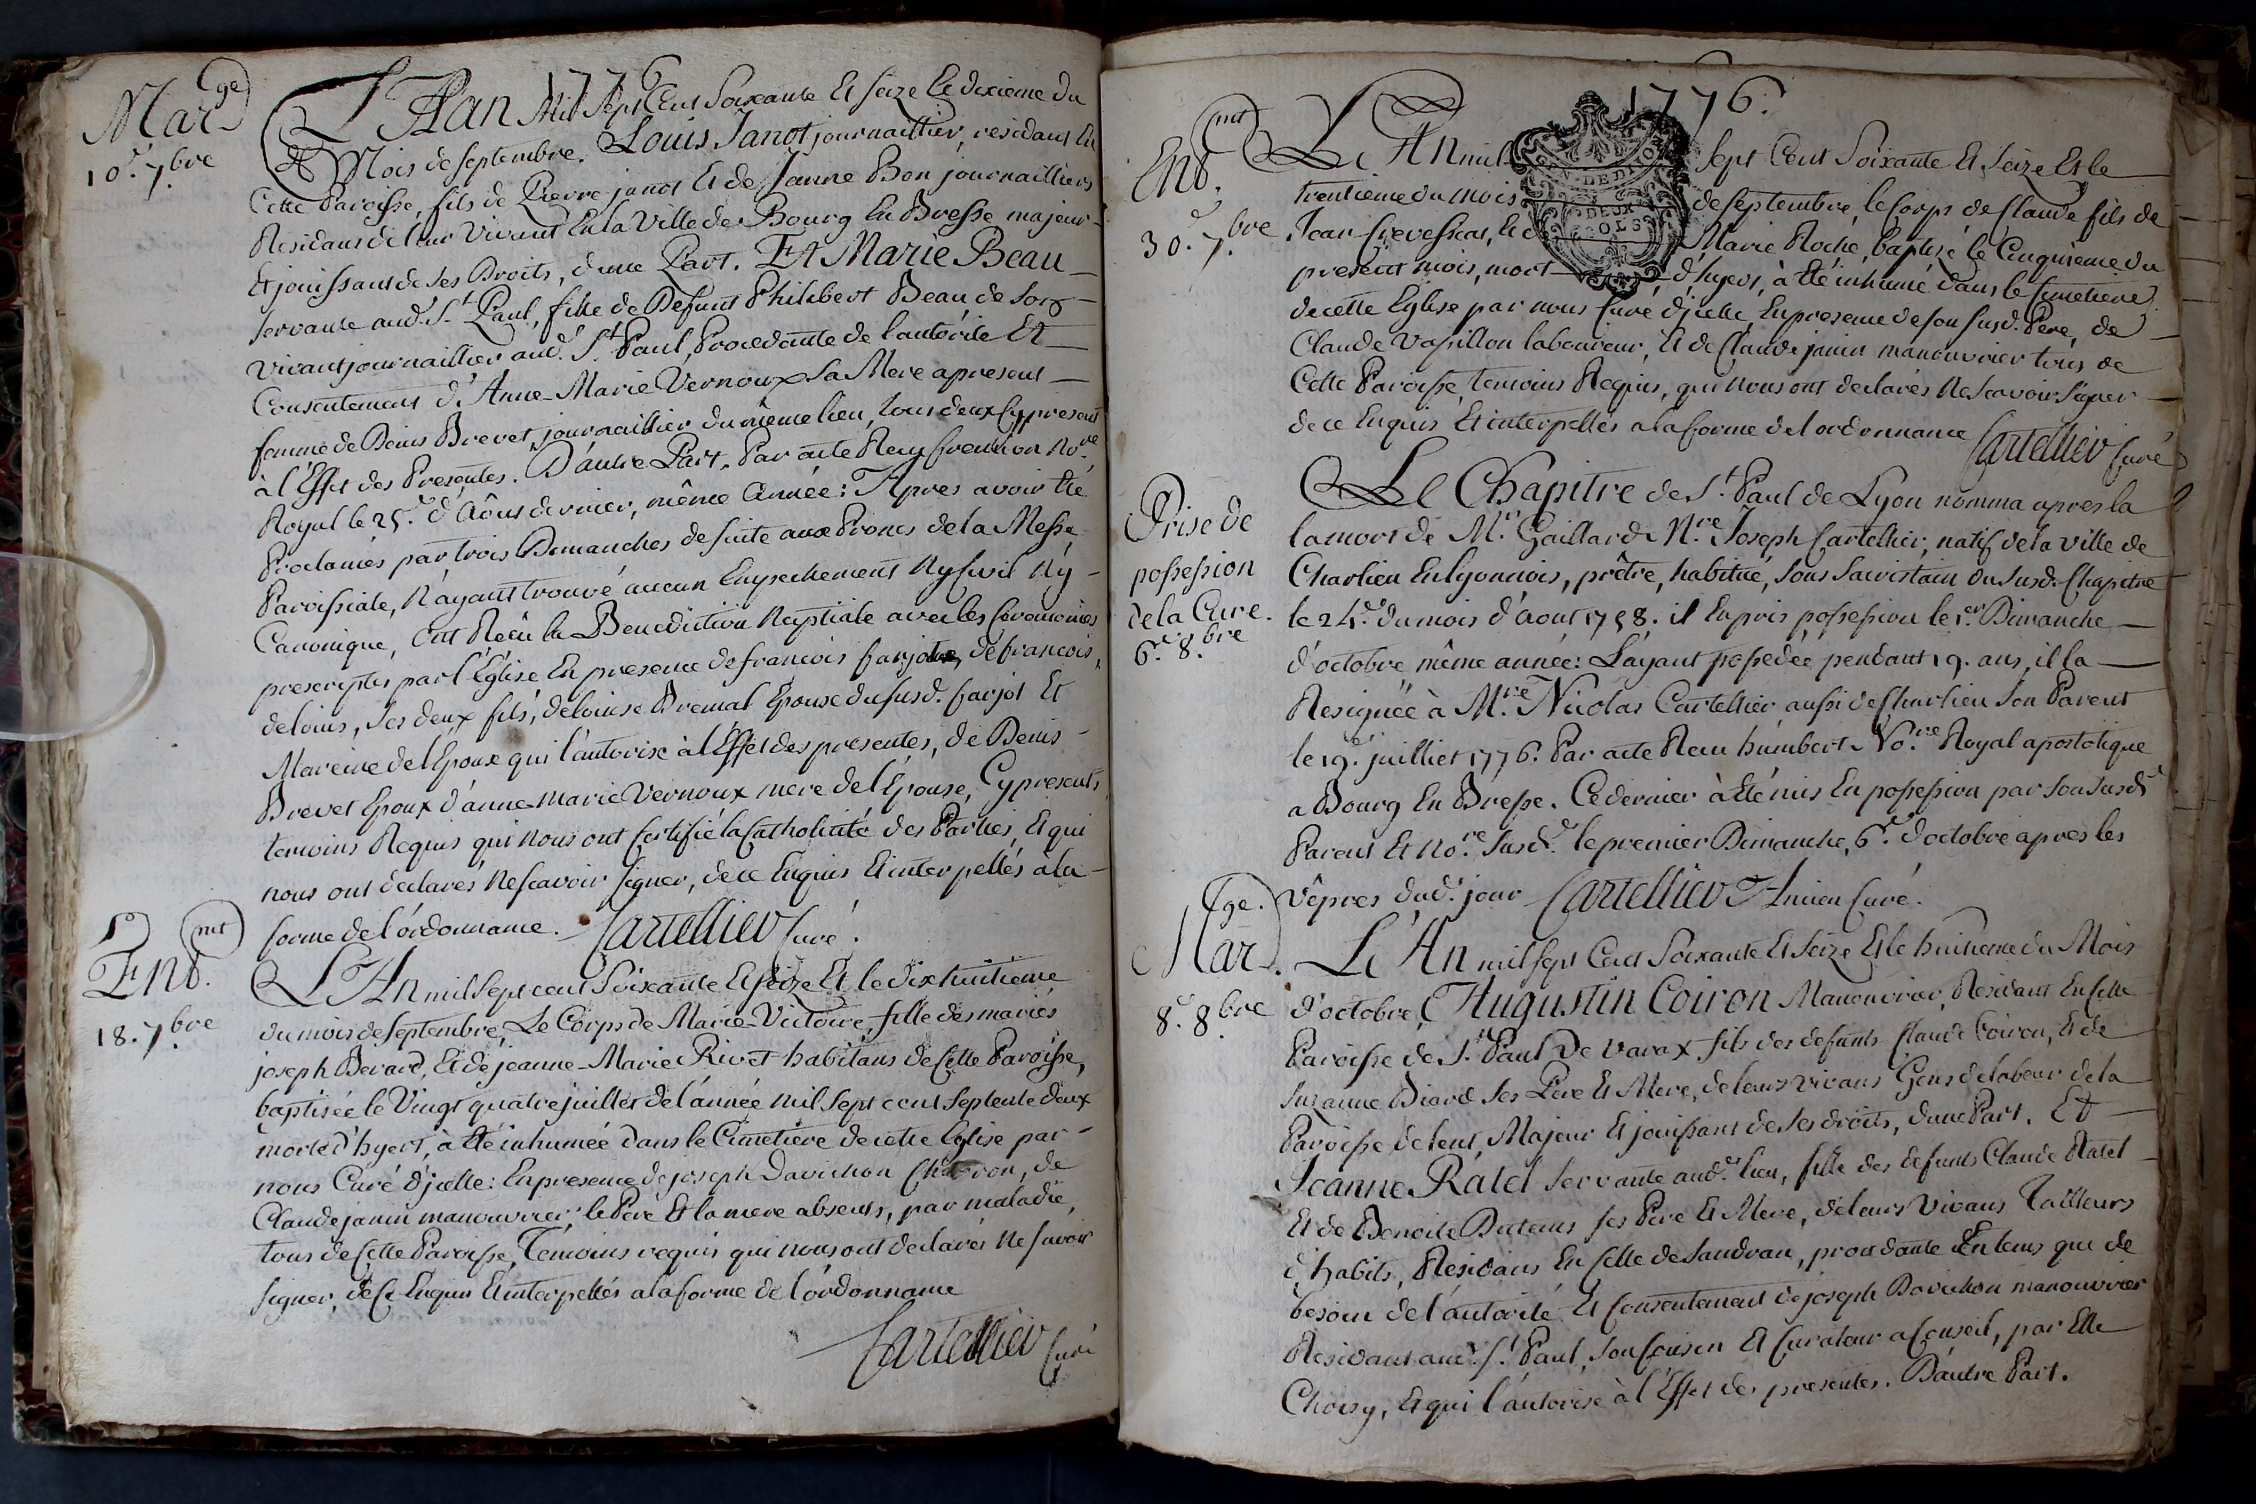 1776
Mar.ge
10.e 7.bre
L'An Mil Sept Cent Soixante Et Seize Le dixieme du
Mois de septembre. Louis Janot journaillier, residant En
Cette Paroisse, fils de Pierre janot Et de Janne Bon journailliers
Residans de leur Vivant En la Ville de Bourg En Bresse majeur
Et jouissant de ses Droits, d'une Part. Et Marie Beau
servante aud. St Paul, fille de Defunt Philibert Beau de son
vivant journaillier aud. St Paul, Procedante de l'autorité Et
Consentement d'Anne-Marie Vernoux sa Mere apresent
femme de Denis Brevet, journaillier du même lieu, tous deux Cy present
à l'Effet des Presentes. D'autre Part. Par acte Reçu No.re
Royal le 25.e d'Aôust dernier, même année: Apres avoir été
Proclamés par trois Dimanches de suite aux Prones de la Messe
Paroissiale, N'ayant trouvé aucun Empechement Ny Civil Ny
Canonique, Ont Reçu la Benediction Nuptiale avec les Ceremonies
prescriptes par l'Eglise En presence de francois farjot, de francois,
de louis, ses deux fils, de louise Bremal Epouse du susd. farjot Et
Mareine de l'Epoux qui l'autorise à l'Effet des presentes, de Denis
Brevet Epoux d'anne-Marie Vernoux mere de l'Epouse, Cy presents,
temoins Requis qui nous ont Certifié la Catholicité des Parties, Et qui
nous ont declarés Ne scavoir signer, de ce Enquis Et interpellés à la
forme de l'ordonnance. Cartellier Curé.
Ent.mt
18. 7.bre
L'An mil Sept cent Soixante Et seize Et le dix huitieme
du mois de septembre, Le Corps de Marie-Victoire, fille des mariés
joseph Berard, Et de jeanne-Marie Rivet habitans de Cette Paroisse,
baptisée le Vingt quatre juillet de l'année mil Sept cent Septente deux
morte d'hyert, à été inhumée dans le Cimetiere de cette Eglise par
nous Curé d'jcelle: En presence de joseph Davichon Charron, de
Claude janin manouvrier, le Pere Et la mere absents, par maladie,
tous de Cette Paroisse, Temoins requis qui nous ont declarés Ne scavoir
signer, de Ce Enquis Et interpellés a la forme de l'ordonnance
Cartellier Curé
1776.
Ent.mt
30.e 7.bre
L'An mil Sept Cent Soixante Et Seize Et le
trentieme du mois de septembre, le Corps de Claude fils de
Jean Et Marie Roche, baptisé le Cinquieme du
present mois, mort d'hyert, à été inhumé dans le Cimetiere
de cette Eglise par nous Curé d'jcelle, En presence de son susd. Pere, de
Claude Vapillon laboureur, Et de Claude janin manouvrier tous de
Cette Paroisse, temoins Requis, qui nous ont declarés Ne scavoir signer
de ce Enquis Et interpellés a la forme de l'ordonnance Cartellier Curé
GEN. DE DIJON
DEUX
SOLS
Prise de
possession
de la Cure.
6.e 8.bre
Le Chapitre de St Paul de Lyon nomma apres la
la mort de Mr. Gaillard Mre. Joseph Cartellier, natif de la ville de
Charlieu En lyonnois, prêtre, habitué, sous Sacristain du susd. Chapitre
le 24.e du mois d'aout 1758. il En pris possession le 1.er Dimanche
d'octobre, même année: L'ayant possedée pendant 19. ans, il la
Resignée à M.re Nicolas Cartellier aussi de Charlieu son Parent
le 19.e juilliet 1776. Par acte Recu humbert No.re Royal apostolique
a Bourg En Bresse. Ce dernier à été mis En possession par son susd.
Parent Et No.re susd. le premier Dimanche, 6.e d'octobre apres les
Vêpres dud. jour Cartellier Ancien Curé.
Mar.ge
8.e 8.bre
L'An mil sept Cent Soixante Et Seize Et le huitieme du Mois
d'octobre, Augustin Coiron Manouvrier, Residant En Cette
Paroisse de St. Paul De Varax fils des defunts Claude Coiron, Et de
Suzanne Biard ses Pere Et Mere, de leurs vivans Gens de labeur de la
Paroisse de lent, Majeur Et jouissant de ses droits, d'une Part. Et
Jeanne Ratel servante aud. lieu, fille des defunts Claude Ratel
Et de Benoite Dutems ses Pere Et Mere, de leurs Vivans Tailleurs
d'habits, Residans En Celle de Sandran, procedante En tems que de
besoin de l'autorité Et Consentement de joseph Davichon manouvrier
Residant aud. St. Paul, son Cousin Et Curateur a Conseil, par Elle
Choisy, Et qui l'autorise à l'Effet des presentes. D'autre Part.